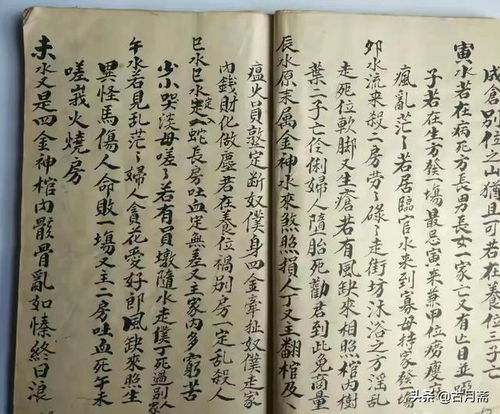 成倉別位之山猶且可若於養位三亡
寅水若在病死方長男長女一家亡又有𠫵日並
子若在生方發塲最忌寅來兼甲位癆瘵
瘋亂茫〻若居臨官水來到寡母持家發塲
夘水流来殺二房劳〻碌〻走街坊沐浴之方淫乱
走死位軟脚又生瘡若有風缺來相照棺内樹
葉二子亡伶俐婦人隨胎死勸君到此免商量
辰水原来属金神水來煞照損人丁又主翻棺及
瘟火員墪定断奴僕身四金牽扯奴僕走家
内錢財化做塵若在養位禍别房一定乱殺人
巳水巳水定入蛇長房吐血定無差又主家内多窮苦
少小哭淡母嗟〻若有員墩隨水走僕丁死過别人家
午水若見乱茫〻婦人貪花愛好郎風缺來照生
異怪馬傷人命敗一塲又主二房吐血死午未
嗟峩火燒房
未水又是四金神棺内骸骨亂如榛終日浪
头条 @古月斋